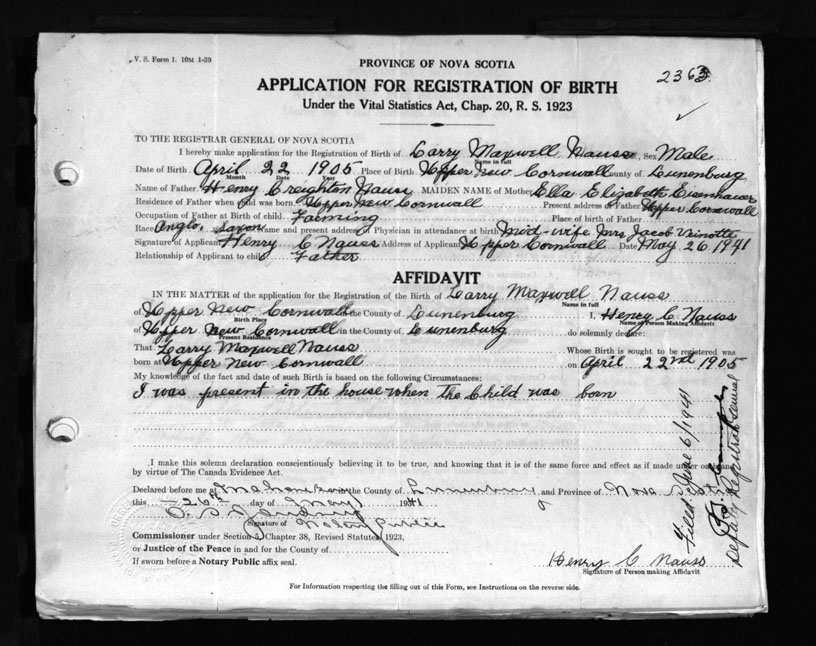 V. S. Form 1. 10M 1-39
PROVINCE OF NOVA SCOTIA
2363
APPLICATION FOR REGISTRATION OF BIRTH
Under the Vital Statistics Act, Chap. 20, R. S. 1923
TO THE REGISTRAR GENERAL OF NOVA SCOTIA
I hereby make application for the Registration of Birth of Larry Maxwell Nauss, Sex Male
Name in full
Date of Birth April 22 1905 Place of Birth Upper New Cornwall County of Lunenburg
Month Date Year
Name of Father Henry Creighton Nauss MAIDEN NAME of Mother Ella Elizabeth Eisenhauer
Residence of Father when child was born Upper New Cornwall Present address of Father Upper Cornwall
Occupation of Father at Birth of child Farming Place of birth of Father
Race Anglo, Saxon Name and present address of Physician in attendance at birth Mid-wife Mrs Jacob Veinotte
Signature of Applicant Henry C Nauss Address of Applicant Upper Cornwall Date May 26 1941
Relationship of Applicant to child Father
AFFIDAVIT
IN THE MATTER of the application for the Registration of the Birth of Larry Maxwell Nauss
Name in full
of Upper New Cornwall in the County of Lunenburg I, Henry C. Nauss
Birth Place Name of Person Making Affidavit
of Upper New Cornwall in the County of Lunenburg do solemnly declare:
Present Residence
That Larry Maxwell Nauss Whose Birth is sought to be registered was
born at Upper New Cornwall on April 22nd 1905
My knowledge of the fact and date of such Birth is based on the following Circumstances:
I was present in the house when the Child was born
I make this solemn declaration conscientiously believing it to be true, and knowing that it is of the same force and effect as if made under oath
by virtue of The Canada Evidence Act.
Declared before me at Mahone Bay the County of Lunenburg and Province of Nova Scotia
this 26 day of May 1941
Signature of Notary Public
Commissioner under Section 5, Chapter 38, Revised Statutes, 1923,
or Justice of the Peace in and for the County of
If sworn before a Notary Public affix seal.
Henry C Nauss
Signature of Person making Affidavit
For Information respecting the filling out of this Form, see Instructions on the reverse side.
Filed June 6/1941
Deputy Registrar General